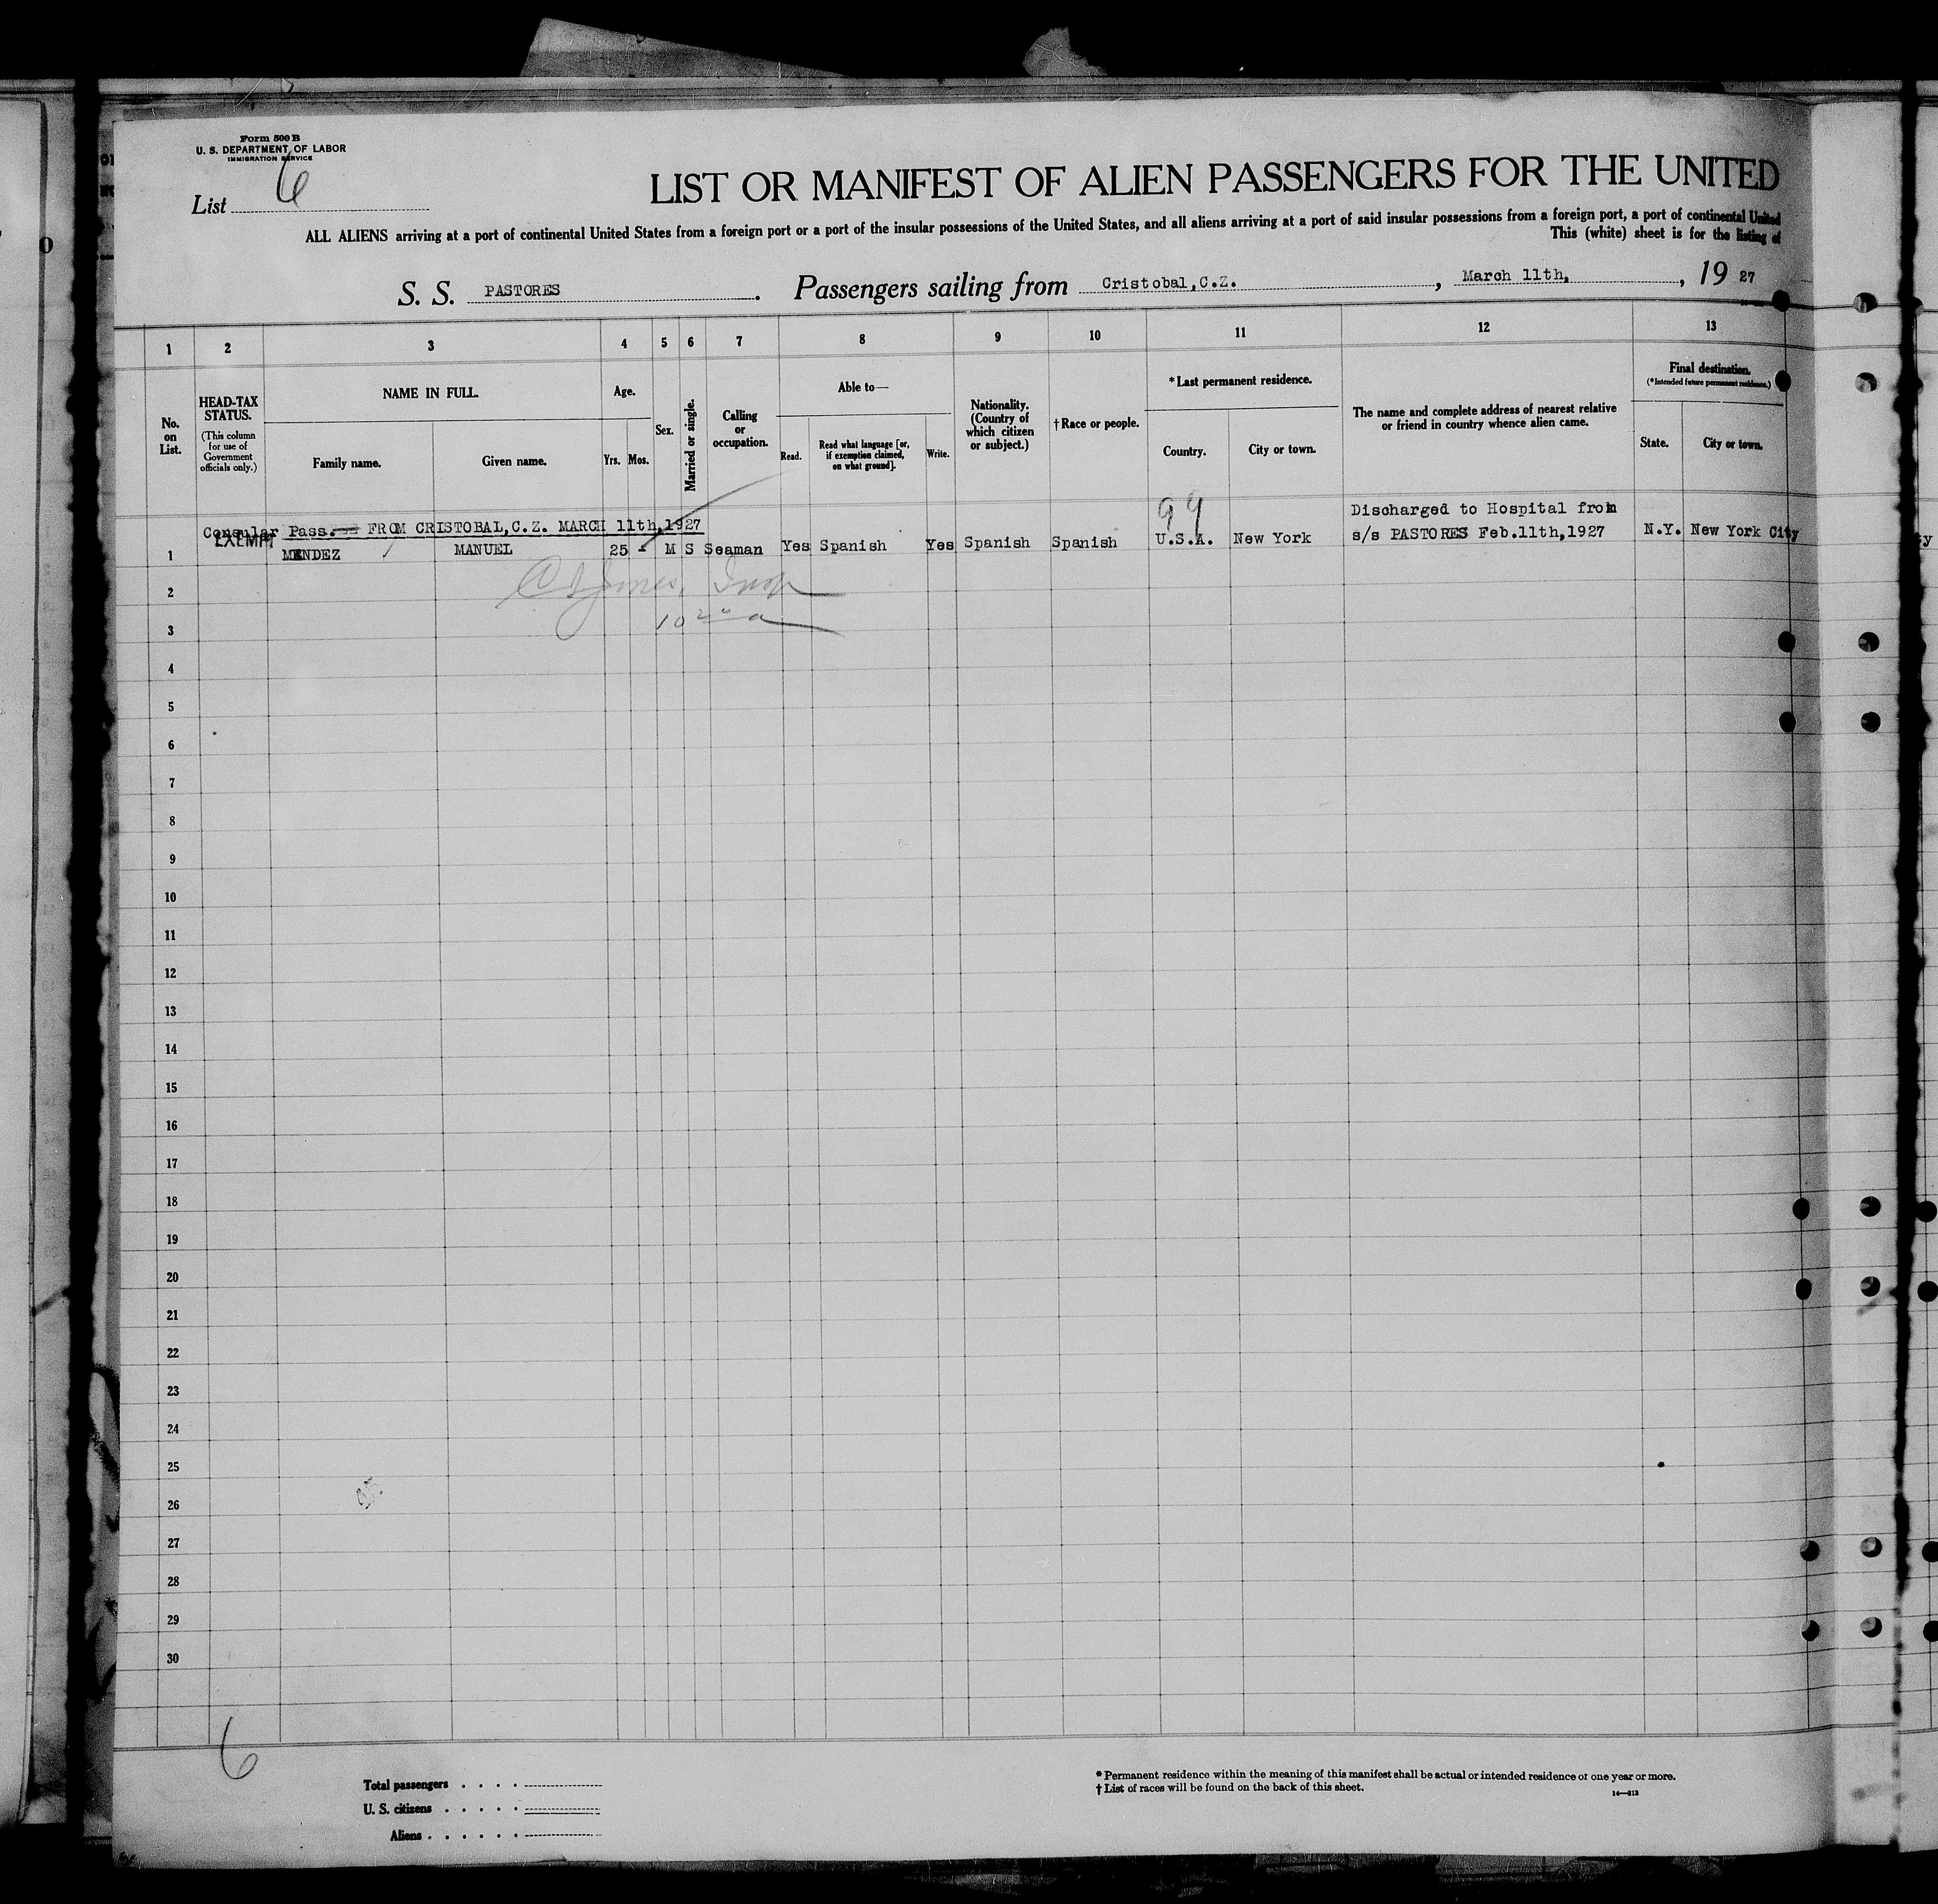 Form 500 B
U. S. DEPARTMENT OF LABOR
IMMIGRATION SERVICE
List 6
LIST OR MANIFEST OF ALIEN PASSENGERS FOR THE UNITED
ALL ALIENS arriving at a port of continental United States from a foreign port or a port of the insular possessions of the United States, and all aliens arriving at a port of said insular possessions from a foreign port, a port of continental United
This (white) sheet is for the listing of
S. S. PASTORES . Passengers sailing from Cristobal,C.Z. , March 11th, , 19 27
1 2 3 4 5 6 7 8 9 10 11 12 13
No. on List.
HEAD-TAX STATUS.
(This column for use of Government officials only.)
NAME IN FULL.
Family name. Given name.
Age.
Yrs. Mos.
Sex.
Married or single.
Calling or occupation.
Able to—
Read. Read what language [or, if exemption claimed, on what ground]. Write.
Nationality. (Country of which citizen or subject.)
†Race or people.
*Last permanent residence.
Country. City or town.
The name and complete address of nearest relative or friend in country whence alien came.
Final destination.
(*Intended future permanent residence.)
State. City or town.
Consular Pass. FROM CRISTOBAL,C.Z. MARCH 11th,1927
99
Discharged to Hospital from
1 EXEMPT MENDEZ MANUEL 25 - M S Seaman Yes Spanish Yes Spanish Spanish U.S.A. New York s/s PASTORES Feb.11th,1927 N.Y. New York City
2
3
4
5
6
7
8
9
10
11
12
13
14
15
16
17
18
19
20
21
22
23
24
25
26
27
28
29
30
6
Total passengers . . . .
U. S. citizens . . . . .
Aliens . . . . . .
* Permanent residence within the meaning of this manifest shall be actual or intended residence of one year or more.
† List of races will be found on the back of this sheet.
14—813